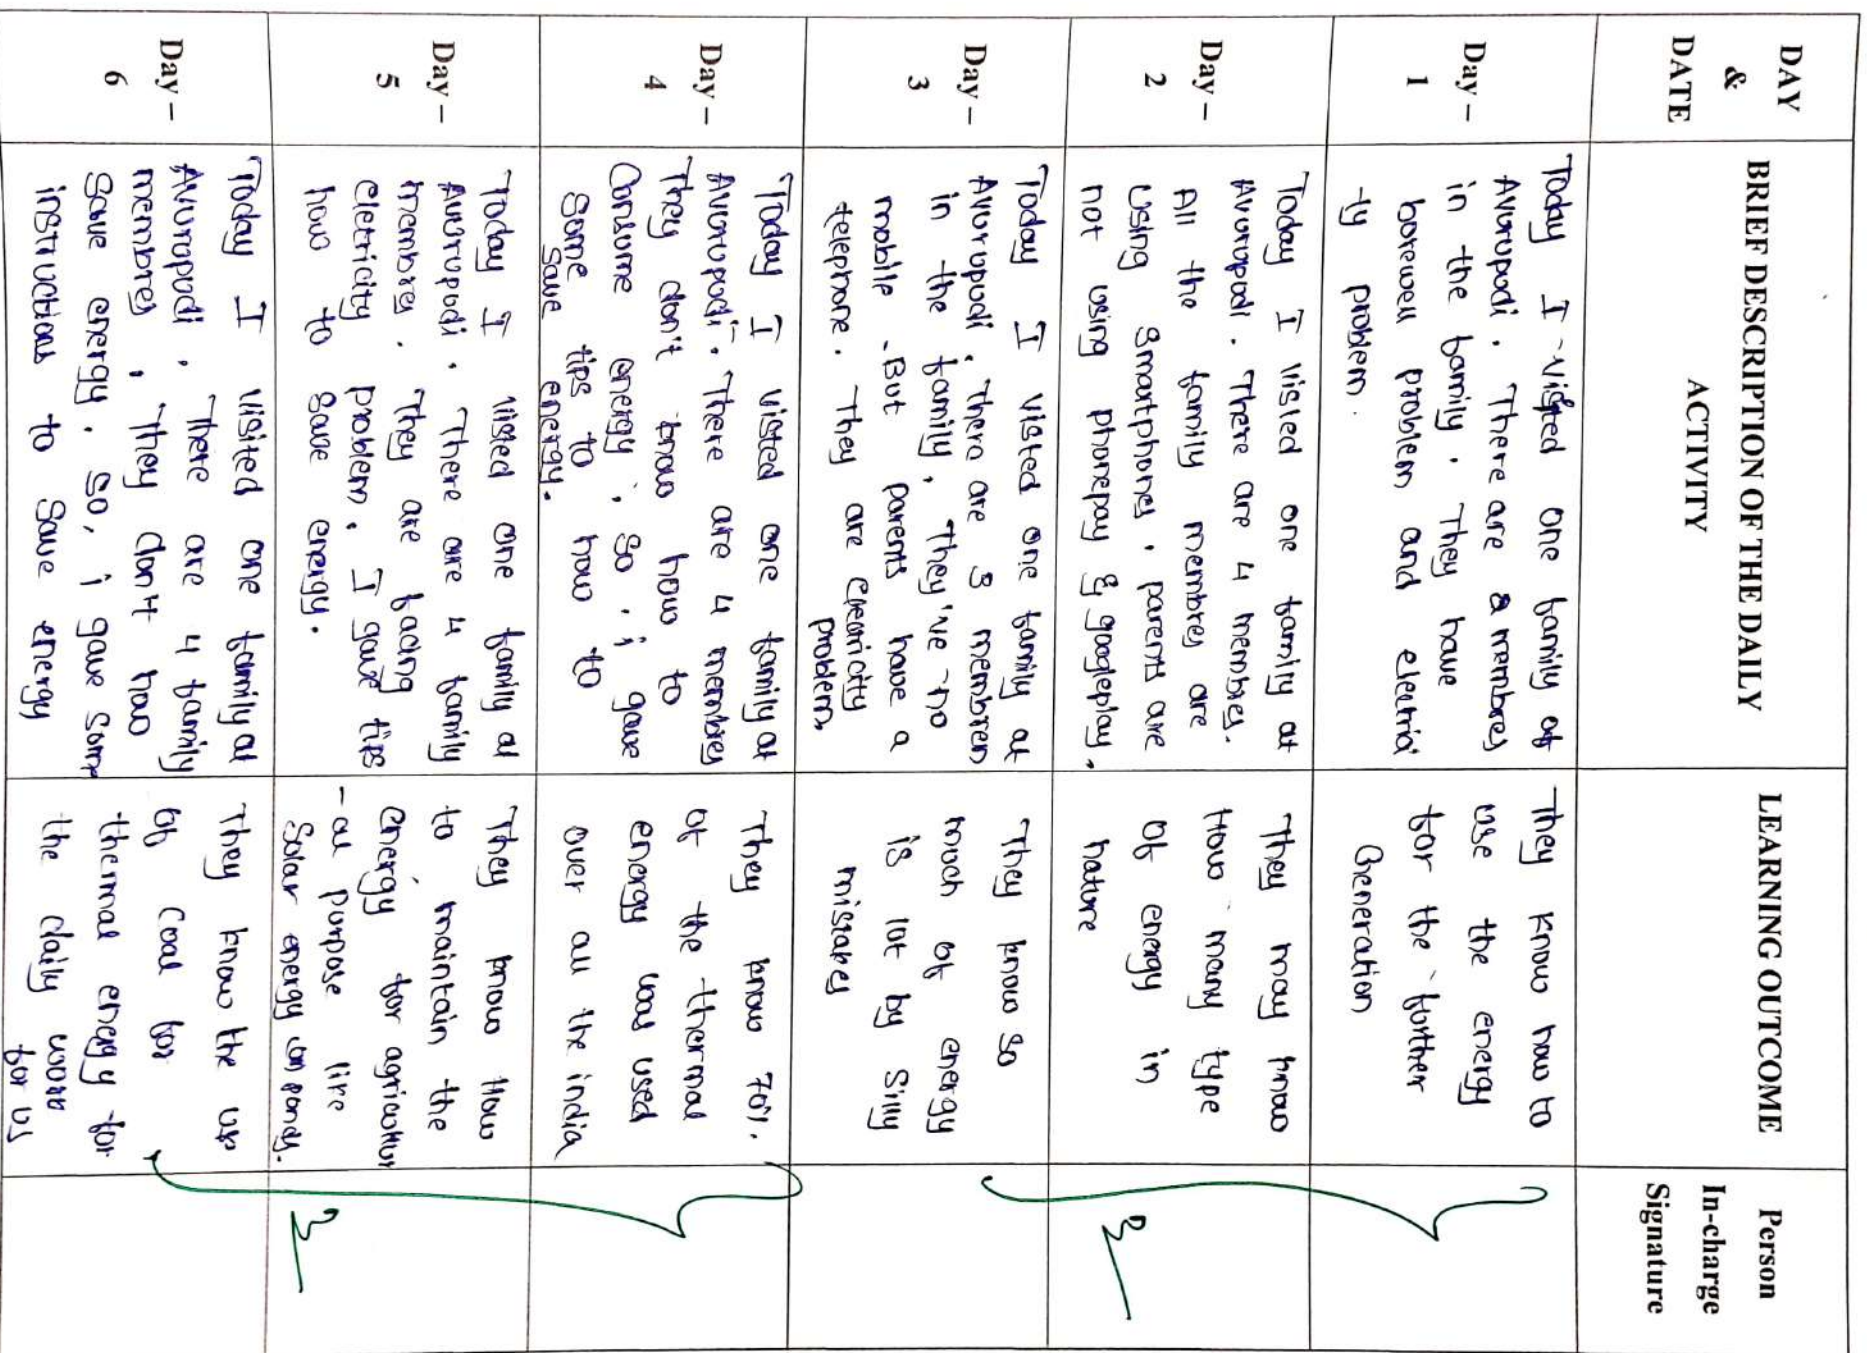 DAY
&
DATE
BRIEF DESCRIPTION OF THE DAILY
ACTIVITY
LEARNING OUTCOME
Person
In-charge
Signature
Day –
1
Today I visited one family at
Avurupodi. There are membres
in the family. They have
borewell problem and electrici
-ty problem.
They know how to
use the energy
for the further
Generation
Day –
2
Today I visted one family at
Avurupodi. There are 4 membres.
All the family membres are
using smartphones. parents are
not using phonepay & googleplay.
They may know
How many type
of energy in
nature
Day –
3
Today I visted one family at
Avurupodi. There are 3 membren
in the family. They've no
mobile. But parents have a
telephone. They are
problem.
They know so
much of energy
is lot by silly
mistakes
Day –
4
Today I visted one family at
Avurupodi. There are 4 membres
They don't know how to
Consume energy. So, i gave
some tips to how to
save energy.
They know 70%.
of the thermal
energy was used
over all the india
Day –
5
Today I visted one family at
Avurupodi. There are 4 family
membres. They are facing
eletricity problem. I gave tips
how to save energy.
They know How
to maintain the
energy for agricultur
-al purpose like
Solar energy on ponds.
Day –
6
Today I visited one family at
Avuropodi. There are 4 family
membres. They don't how
save energy. So, i gave some
instructions to save energy
They know the
of Coal for
thermal energy for
the daily
for us